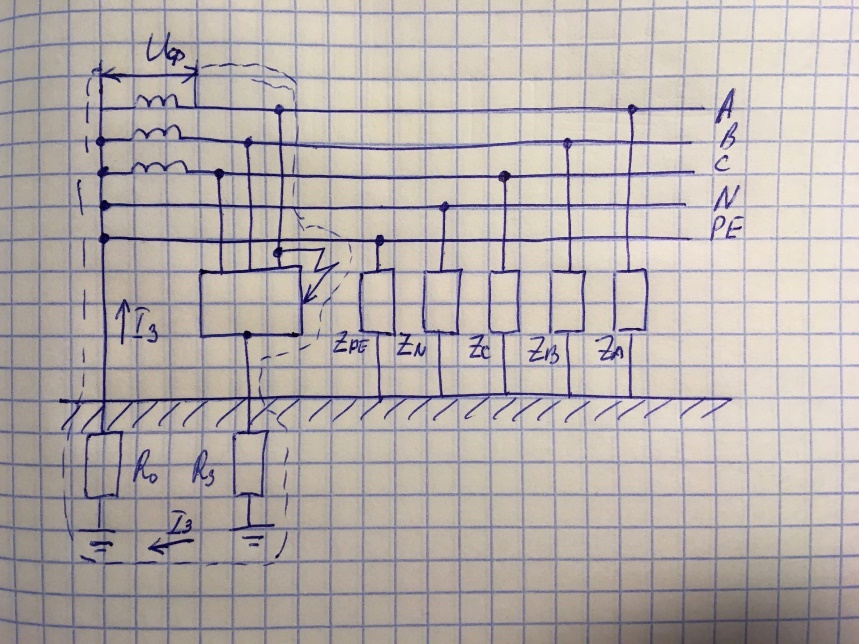 Uф
A
B
C
N
PE
Iз
ZPE ZN ZC ZB ZA
R₀ Rз
Iз